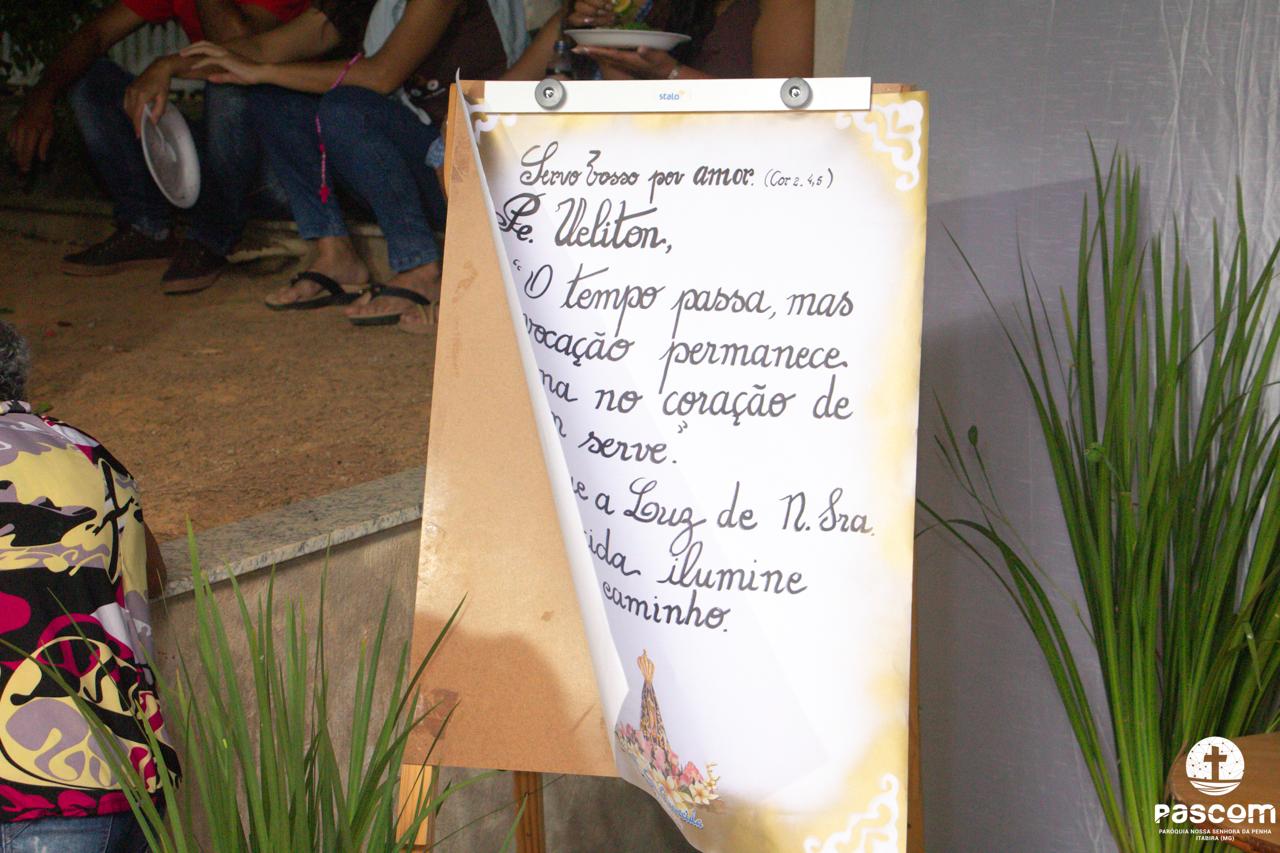 stalo
Servo vosso por amor. (Cor 2. 4,5)
Pe. Ueliton,
"O tempo passa, mas
vocação permanece
na no coração de
serve."
a Luz de N. Sra.
ida ilumine
caminho.
PASCOM
PARÓQUIA NOSSA SENHORA DA PENHA
ITABIRA (MG)